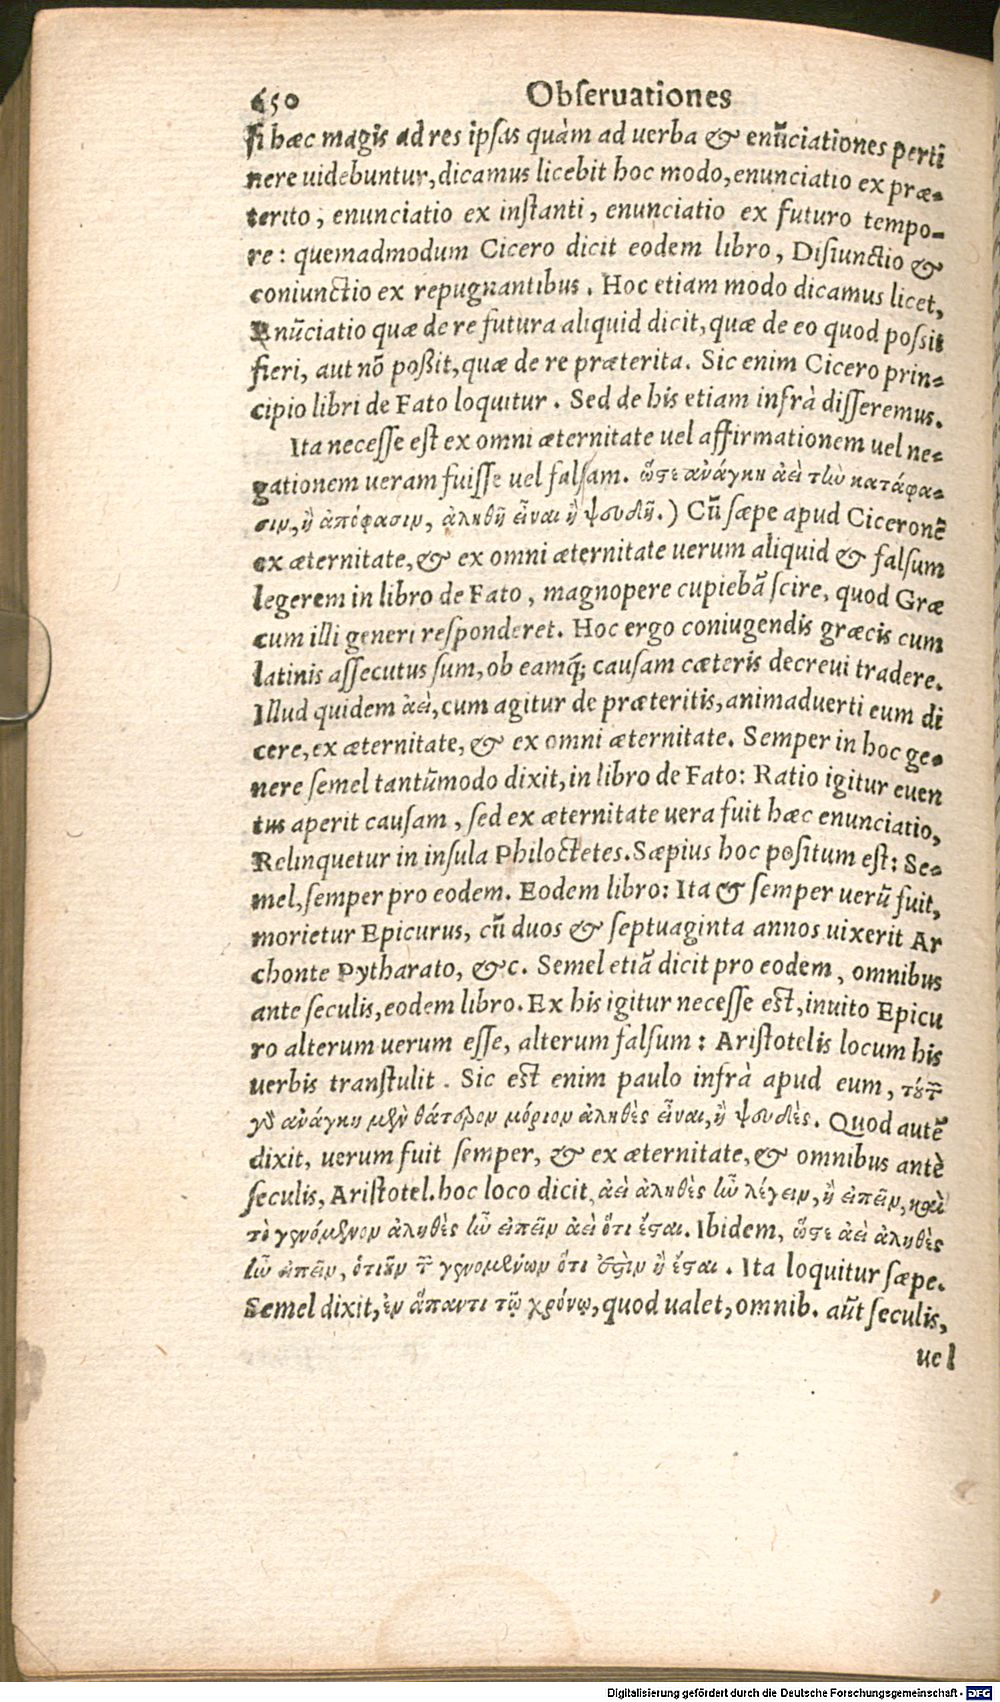 650 Obſeruationes
ſi hæc magis ad res ipſas quàm ad uerba & enũciationes perti
nere uidebuntur, dicamus licebit hoc modo, enunciatio ex præ-
terito, enunciatio ex inſtanti, enunciatio ex futuro tempo-
re: quemadmodum Cicero dicit eodem libro, Diſiunctio &
coniunctio ex repugnantibus. Hoc etiam modo dicamus licet,
Enũciatio quæ de re futura aliquid dicit, quæ de eo quod poſsit
fieri, aut nõ poßit, quæ de re præterita. Sic enim Cicero prin-
cipio libri de Fato loquitur. Sed de his etiam infrà diſſeremus.
Ita neceſſe eſt ex omni æternitate uel affirmationem uel ne-
gationem ueram fuiſſe uel falſam. ὥςε ανάγκη ἀεὶ τὴν κατάφα-
σιν, ἢ ἀπόφασιν, ἀληθῆ εἶναι ἢ ψευδῆ.) Cũ ſæpe apud Ciceronẽ
ex æternitate, & ex omni æternitate uerum aliquid & falſum
legerem in libro de Fato, magnopere cupiebã ſcire, quod Græ
cum illi generi reſponderet. Hoc ergo coniugendis græcis cum
latinis aſſecutus ſum, ob eamq́; cauſam cæteris decreui tradere.
Illud quidem ἀεὶ, cum agitur de præteritis, animaduerti eum di
cere, ex æternitate, & ex omni æternitate. Semper in hoc ge-
nere ſemel tantũmodo dixit, in libro de Fato: Ratio igitur euen
tus aperit cauſam, ſed ex æternitate uera fuit hæc enunciatio,
Relinquetur in inſula Philoctetes. Sæpius hoc poſitum eſt: Se-
mel, ſemper pro eodem. Eodem libro: Ita & ſemper uerũ fuit,
morietur Epicurus, cũ duos & ſeptuaginta annos uixerit Ar
chonte Pytharato, &c. Semel etiã dicit pro eodem, omnibus
ante ſeculis, eodem libro. Ex his igitur neceſſe eſt, inuito Epicu
ro alterum uerum eſſe, alterum falſum: Ariſtotelis locum his
uerbis tranſtulit. Sic eſt enim paulo infrà apud eum, τύτ
γδ ανάγκη μὲν θάτερον μόριον ἀληθὲς εἶναι, ἢ ψευδὲς. Quod autẽ
dixit, uerum fuit ſemper, & ex æternitate, & omnibus antè
ſeculis, Ariſtotel. hoc loco dicit, ἀεὶ ἀληθὲς ἦν λέγειν, ἢ ειπεῖν, καὶ
τὸ γενόμενον ἀληθὲς ἦν ειπεῖν ἀεὶ ὅτι ἔςαι. Ibidem, ὥςε ἀεὶ ἀληθὲς
ἦν ειπεῖν, ὁτιοῦν τ γενομένων ὅτι ἐςὶν ἢ ἔςαι. Ita loquitur ſæpe.
Semel dixit, ἐν ἅπαντι τῷ χρόνῳ, quod ualet, omnib. aũt ſeculis,
uel
Digitalisierung gefördert durch die Deutsche Forschungsgemeinschaft - DFG